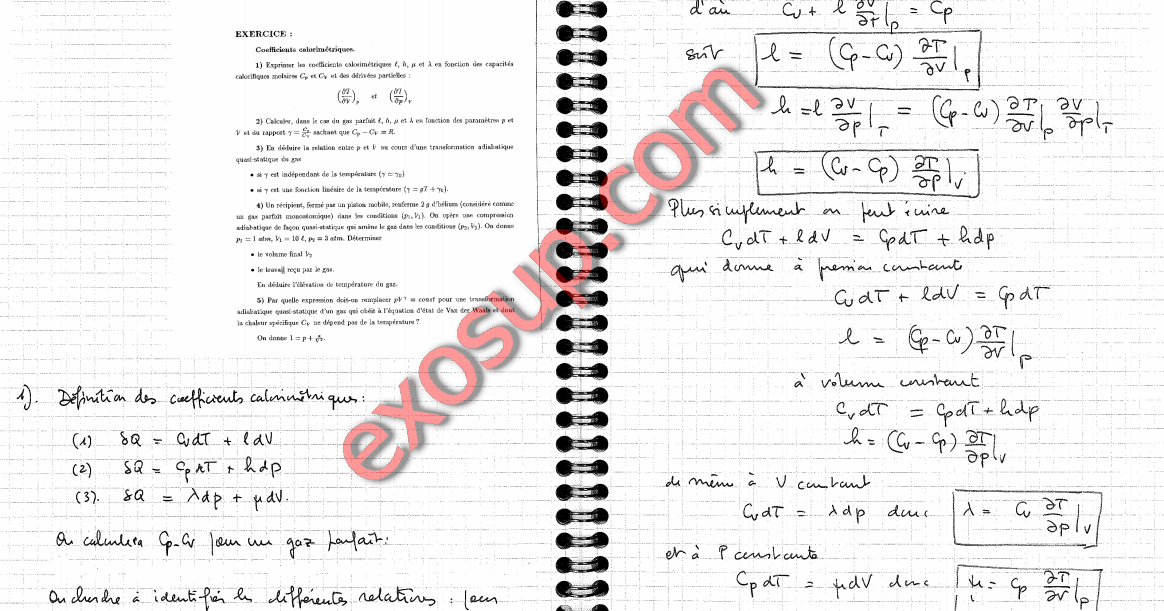 EXERCICE :
Coefficients calorimétriques.
1) Exprimer les coefficients calorimétriques ℓ, h, μ et λ en fonction des capacités
calorifiques molaires Cp et CV et des dérivées partielles :
(∂T/∂V)p et (∂T/∂p)V
2) Calculer, dans le cas du gaz parfait ℓ, h, μ et λ en fonction des paramètres p et
V et du rapport γ = Cp/CV sachant que Cp − CV = R.
3) En déduire la relation entre p et V au cours d'une transformation adiabatique
quasi-statique du gaz
• si γ est indépendant de la température (γ = γ0)
• si γ est une fonction linéaire de la température (γ = gT + γ0).
4) Un récipient, fermé par un piston mobile, renferme 2 g d'hélium (considéré comme
un gaz parfait monoatomique) dans les conditions (p1, V1). On opère une compression
adiabatique de façon quasi-statique qui amène le gaz dans les conditions (p2, V2). On donne
p1 = 1 atm, V1 = 10 ℓ, p2 = 3 atm. Déterminer
• le volume final V2
• le travail reçu par le gaz.
En déduire l'élévation de température du gaz.
5) Par quelle expression doit-on remplacer pVγ = const pour une transformation
adiabatique quasi-statique d'un gaz qui obéit à l'équation d'état de Van der Waals et dont
la chaleur spécifique CV ne dépend pas de la température ?
On donne 1 = p +
1). Définition des coefficients calorimétriques :
(1) δQ = CvdT + ldV
(2) δQ = CpdT + hdp
(3). δQ = λdp + μdV.
On calculera Cp-Cv pour un gaz parfait.
On cherche à identifier les différentes relations : pour
d'où Cv + l ∂V/∂T|p = Cp
soit l = (Cp-Cv) ∂T/∂V|p
h = l ∂V/∂p|T = (Cp-Cv) ∂T/∂V|p ∂V/∂p|T
h = (Cv-Cp) ∂T/∂p|V
Plus simplement on peut écrire
CvdT + ldV = CpdT + hdp
qui donne à pression constante
CvdT + ldV = CpdT
l = (Cp-Cv) ∂T/∂V|p
à volume constant
CvdT = CpdT + hdp
h = (Cv-Cp) ∂T/∂p|V
de même à V constant
CvdT = λdp donc λ = Cv ∂T/∂p|V
et à P constante
CpdT = μdV donc μ = Cp ∂T/∂V|p
exosup.com